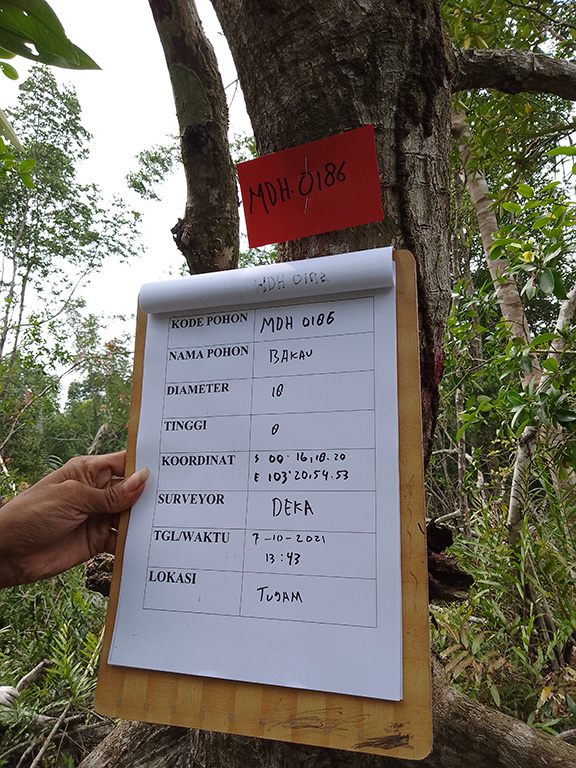 MDH.0186
KODE POHON MDH 0186
NAMA POHON BAKAU
DIAMETER 18
TINGGI 8
KOORDINAT S 00° 16, 18.20
E 103°20,54.53
SURVEYOR DEKA
TGL/WAKTU 7-10-2021
13:43
LOKASI